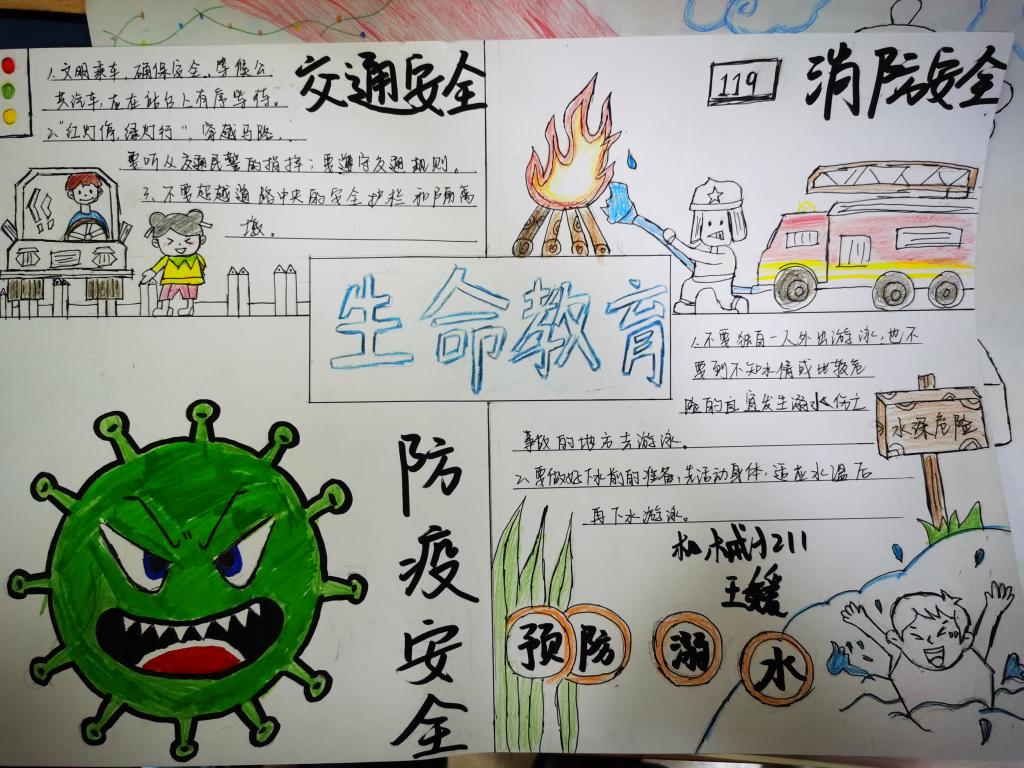 交通安全
1.文明乘车,确保安全,等候公
共汽车,应在站台上有序等待。
2."红灯停,绿灯行",穿越马路,
要听从交通民警的指挥;要遵守交通规则。
3.不要超越道路中央的安全护栏和隔离
墩。
119
消防安全
生命教育
1.不要独自一人外出游泳,也不
要到不知水情或比较危
险的且宜发生溺水伤亡
事故的地方去游泳。
2.要做好下水前的准备,先活动身体,适应水温后
再下水游泳。
水深危险
防疫安全
机械小211
王媛
预防溺水